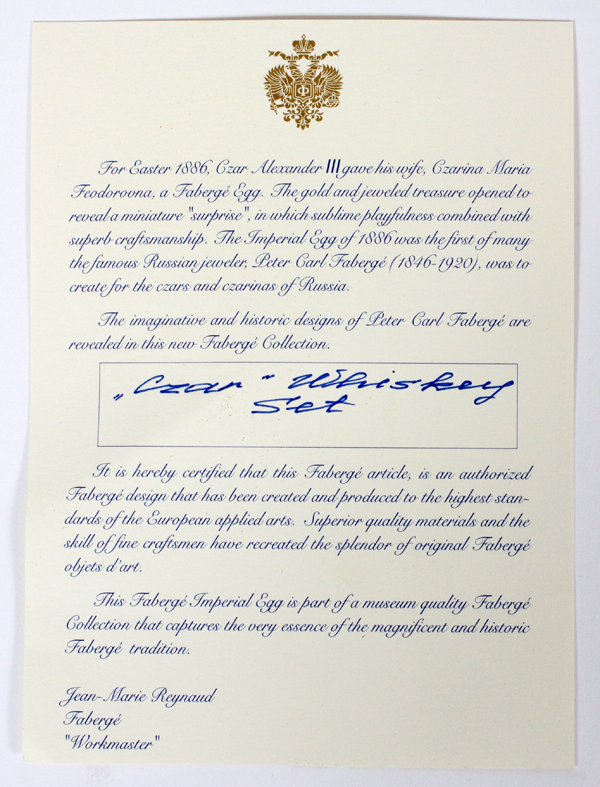 Ф
For Easter 1886, Czar Alexander III gave his wife, Czarina Maria
Feodorovna, a Fabergé Egg. The gold and jeweled treasure opened to
reveal a miniature "surprise", in which sublime playfulness combined with
superb craftsmanship. The Imperial Egg of 1886 was the first of many
the famous Russian jeweler, Peter Carl Fabergé (1846-1920), was to
create for the czars and czarinas of Russia.
The imaginative and historic designs of Peter Carl Fabergé are
revealed in this new Fabergé Collection.
„Czar" Whiskey
Set
It is hereby certified that this Fabergé article, is an authorized
Fabergé design that has been created and produced to the highest stan-
dards of the European applied arts. Superior quality materials and the
skill of fine craftsmen have recreated the splendor of original Fabergé
objets d'art.
This Fabergé Imperial Egg is part of a museum quality Fabergé
Collection that captures the very essence of the magnificent and historic
Fabergé tradition.
Jean-Marie Reynaud
Fabergé
"Workmaster"